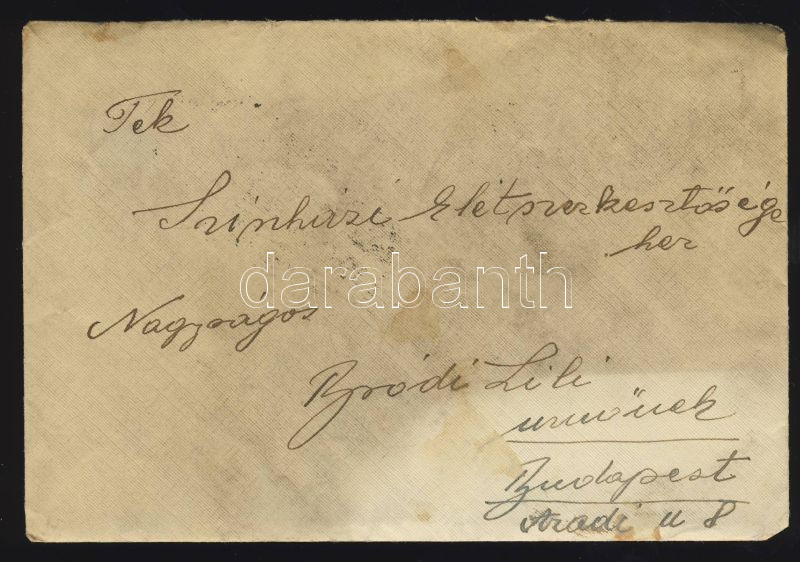 Tek
Szinházi Életszerkesztősége
hez
darabanth
Nagyságos
Bródi Lili
urnőnek
Budapest
Aradi u 8